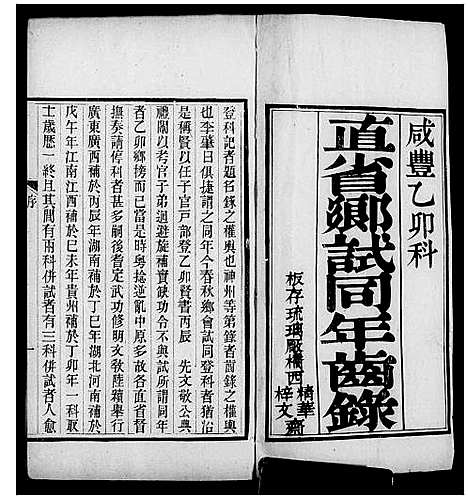 咸豐乙卯科
直省鄉試同年齒錄
板存琉璃廠橋西
精華
梓文
齋
登科記者題名錄之權輿也神州等第錄者齒錄之權輿
也李肇曰俱捷謂之同年今春秋鄉會試同登科者猶沿
是稱賢以任子官戶部登乙卯賢書丙辰 先文敬公典
禮闈以考官子弟迴避旋補覆試例不與試所謂同年
者乙卯鄉榜而已當是時粵捻逆亂中原多故各直省督
撫奏請停科者甚多嗣後耆定武功修明文敎陸續舉行
廣東廣西補於丙辰年湖南補於丁巳年湖北河南補於
戊午年江南江西補於己未年貴州補於丁卯年一科取
士歲歷一終且其間有兩科併試者有三科併試者人愈
序
一